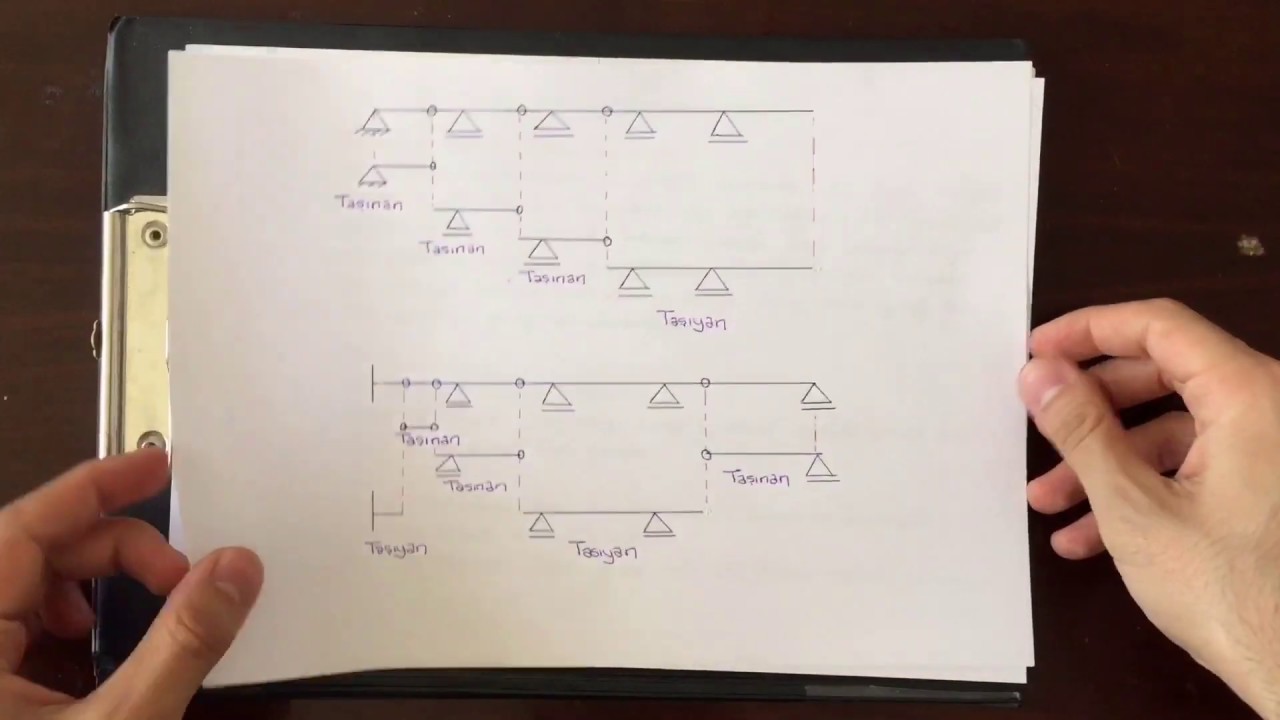 Taşınan
Taşınan
Taşınan
Taşıyan
Taşınan
Taşınan
Taşınan
Taşıyan
Taşıyan